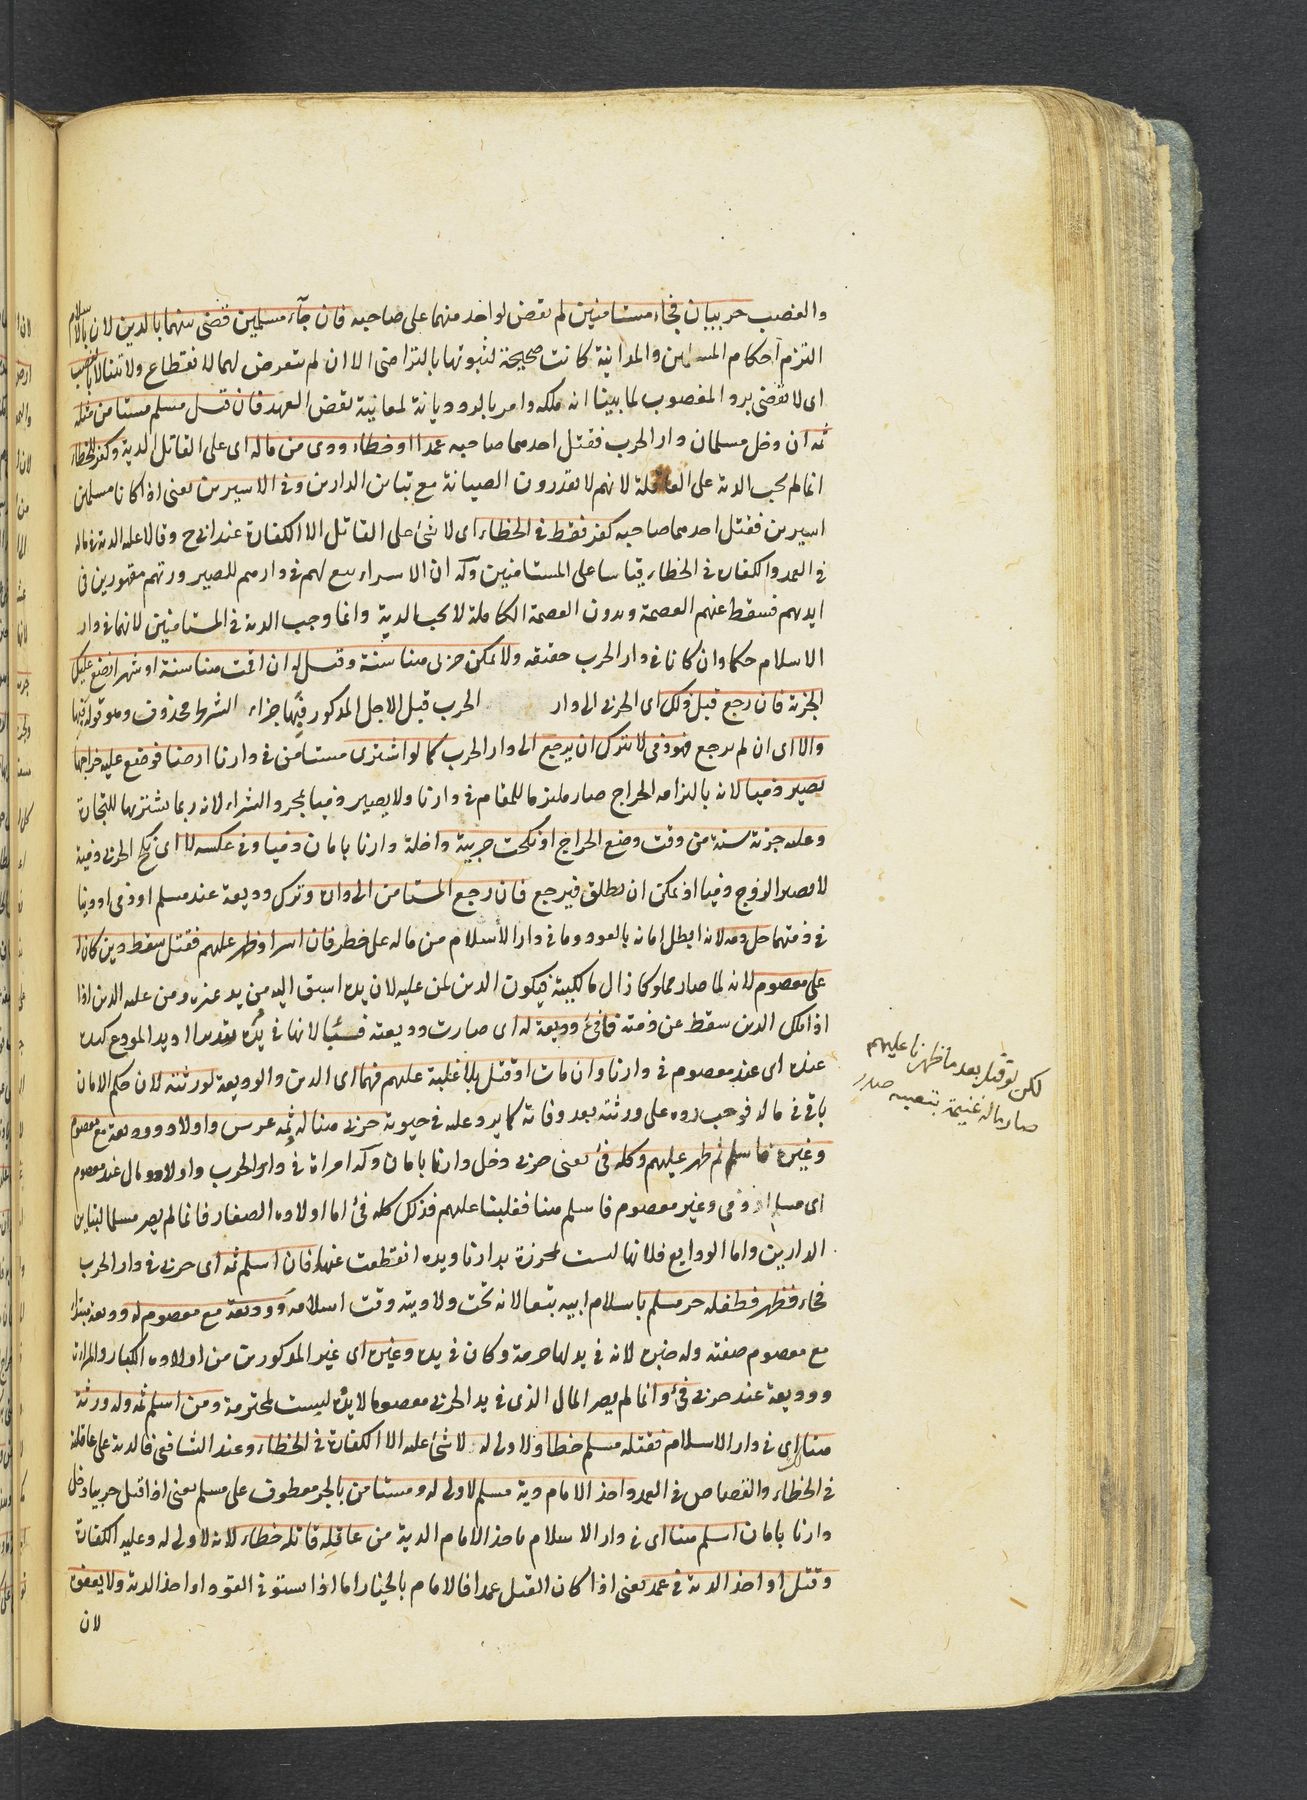 والغصب حربيان فجاء مستأمنين لم يقض لواحد منهما على صاحبه فان جاء مسلمين قضى بينهما بالدين لان بالاسلام
التزم احكام المسلمين والمداينة كانت صحيحة لثبوتها بالتراضى الا ان لم نتعرض لهما لانقطاع ولايتنا لا بالغصب
اى لا نقضى برد المغصوب لما بينا انه ملكه وامر بالرد ديانة لمعانية نقض العهد فان قتل مسلم مستأمن مثله
ثمه ان دخل مسلمان دار الحرب فقتل احدهما صاحبه عمدا او خطاء ودى من ماله اى على القاتل الدية وكفر للخطاء
انما لم يجب الدية على العاقلة لانهم لا يقدرون الصيانة مع تباين الدارين وفى الاسيرين يعنى اذا كانا مسلمين
اسيرين فقتل احدهما صاحبه كفر فقط فى الخطاء اى لا شئ على القاتل الا الكفارة عند ابى ح وقالا عليه الدية فى ماله
فى العمد والكفارة فى الخطاء قياسا على المستأمنين وله ان الاسراء تبع لهم فى دارهم لصيرورتهم مقهورين فى
ايديهم فسقط عنهم العصمة وبدون العصمة الكاملة لا يجب الدية وانما وجب الدية فى المستأمنين لانهما فى دار
الاسلام حكما وان كانا فى دار الحرب حقيقه ولا يمكن حربى منا سنة وقيل له ان اقمت منا سنة او شهرا نضع عليك
الجزية فان رجع قبل ذلك اى الحربى الى دار الحرب قبل الاجل المذكور فبها جزاء الشرط محذوف وهو قوله فبها
والا اى ان لم يرجع فهو ذمى لا يترك ان يرجع الى دار الحرب كما لو اشترى مستأمن فى دارنا ارضا فوضع عليه خراجها
يصير ذميا لانه بالتزامه الخراج صار ملتزما للمقام فى دارنا ولا يصير ذميا بمجرد الشراء لانه ربما يشتريها للتجارة
وعليه جزية سنة من وقت وضع الخراج او نكحت حربية داخلة دارنا بامان ذميا وفى عكسه لا اى نكح الحربى ذمية
لا يصير الزوج ذميا اذ يمكن ان يطلق فيرجع فان رجع المستأمن الى داره وترك وديعة عند مسلم او ذمى او دينا
فى ذمتهما حل دمه لانه ابطل امانه بالعود وما فى دار الاسلام من ماله على خطر فان اسر او ظهر عليهم فقتل سقط دين كان له
على معصوم لانه لما صار مملوكا زال مالكيته فيكون الدين لمن عليه لان يده اسبق اليه من يد غيره ومن عليه الدين اذا
اذا ملك الدين سقط عن ذمته فافئ وديعة له اى صارت وديعته فيئا لانها فى يده تقديرا اذ يد المودع كيده
عنده اى عند معصوم فى دارنا وان مات او قتل بلا غلبة عليهم فهما اى الدين والوديعة لورثته لان حكم الامان
باق فى ماله فوجب رده على ورثته بعد وفاته كما يرد عليه فى حيوته حربى منا له ثمه عرس واولاد ووديعة مع معصوم
وغيره فاسلم ثم ظهر عليهم وكله فئ يعنى حربى دخل دارنا بامان وله امراة فى دار الحرب واولاد ومال عند معصوم
اى مسلم او ذمى وغير معصوم فاسلم منا فغلبنا عليهم فذلك كله فئ اما اولاده الصغار فانما لم يصر مسلما لتباين
الدارين واما الودايع فلانها ليست محرزة بدارنا ويده انقطعت عنها فان اسلم ثمه اى حربى فى دار الحرب
فجاء فظهر فطفله حر مسلم باسلام ابيه تبعا لانه تحت ولايته وقت اسلامه ووديعة مع معصوم له
مع معصوم صفته وله خبره لانه فى يد لها حرمة وكان فى يده وغيره اى غير المذكورين من اولاده الكبار والمراة
ووديعة عند حربى فئ وانما لم يصر المال الذى فى يد الحربى معصوما لا يده ليست محترمة ومن اسلم ثمه وله ورثة
منا اى فى دار الاسلام فقتله مسلم خطا ولا ولى له لا شئ عليه الا الكفارة فى الخطاء وعند الشافعى فالدية على عاقلته
فى الخطاء والقصاص فى العمد واخذ الامام دية مسلم لا ولى له ومستأمن بالجر معطوف على مسلم يعنى اذا قتل حربيا دخل
دارنا بامان اسلم منا اى فى دار الاسلام ياخذ الامام الدية من عاقلة قاتله خطاء لانه لا ولى له وعليه الكفارة
وقتل او اخذ الدية فى عمد يعنى اذا كان القتل عمدا فالامام بالخيار اما اذا يستوفى القود او اخذ الدية ولا يعفوه
لان
لكن لو قتل بعد ما ظهرنا عليهم
صار ماله غنيمة بتبعيه صدر